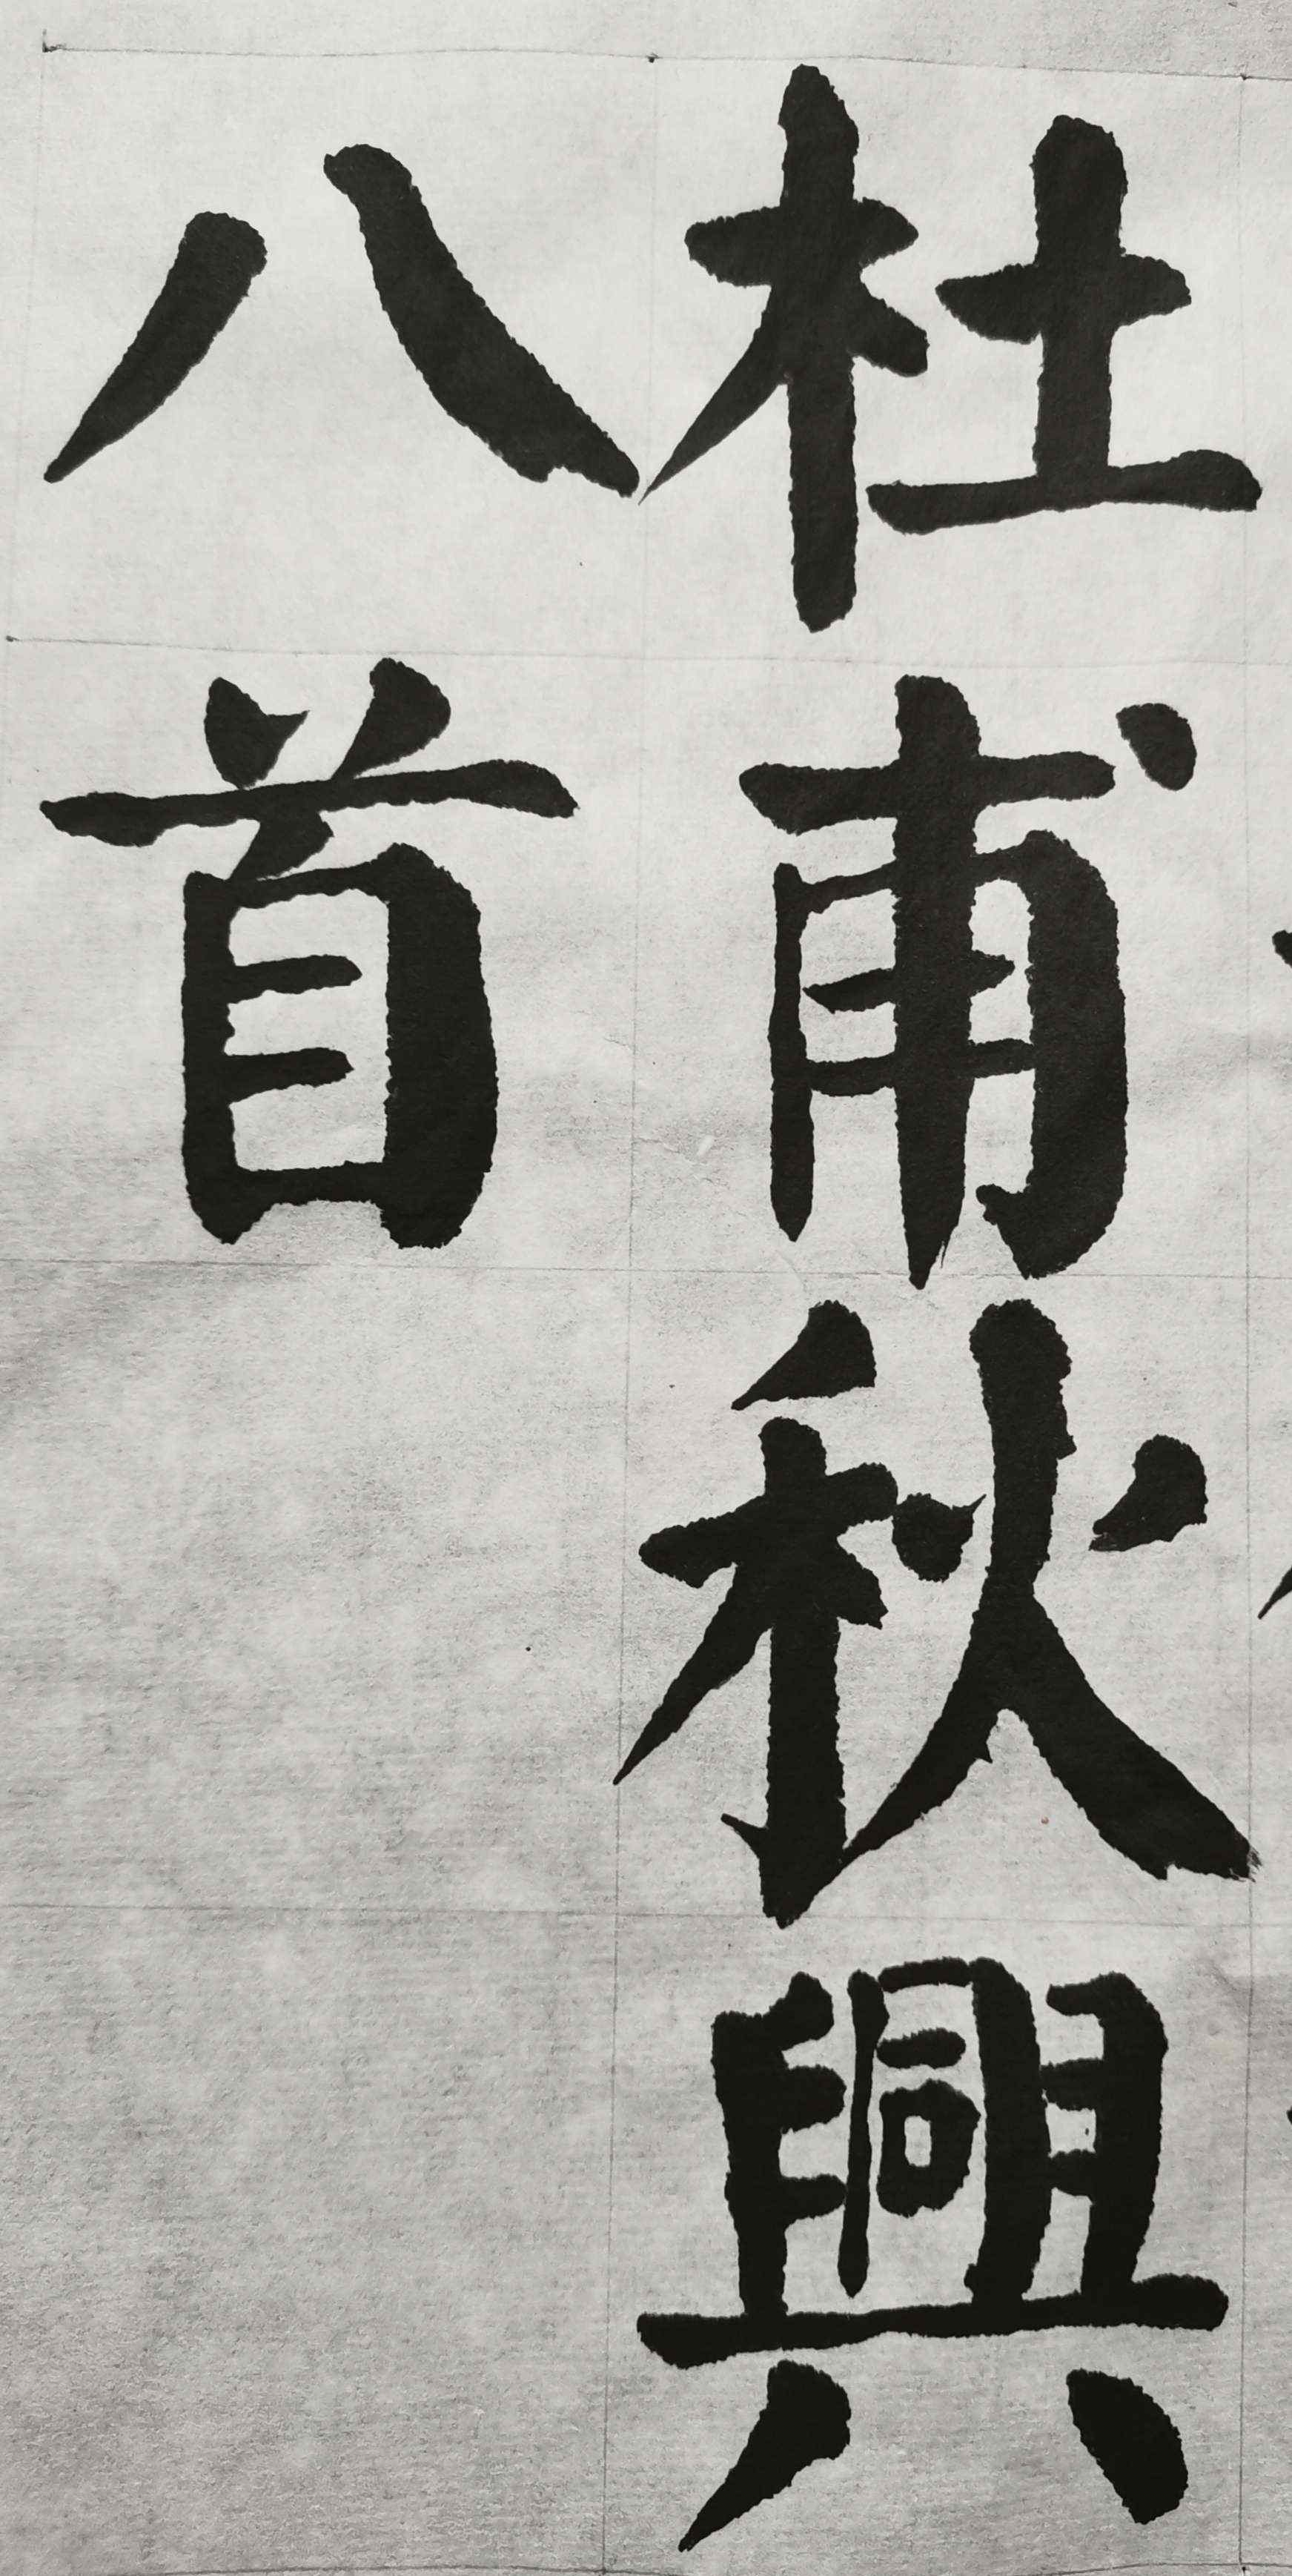 杜甫秋興
八首